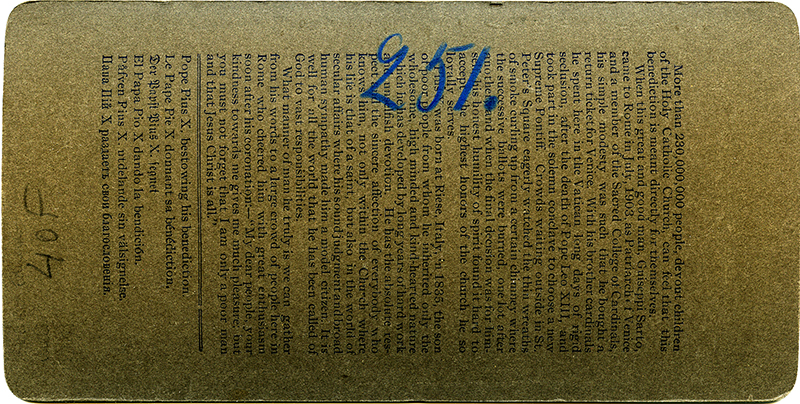 251.
More than 230,000,000 people, devout children
of the Holy Catholic Church, can feel that this
benediction is meant directly for themselves.
When this great and good man, Guiseppi Sarto,
came to Rome in July, 1903, as Patriarch of Venice
and a member of the Sacred College of Cardinals,
his simple modesty was such that he bought a
return ticket for Venice. With his brother cardinals
he spent here in the Vatican long days of rigid
seclusion, after the death of Pope Leo XIII, and
took part in the solemn conclave to choose a new
Supreme Pontiff. Crowds waiting outside in St.
Peter's Square eagerly watched the thin wreaths
of smoke curling up from a certain chimney where
the successive ballots were burned, one lot after
another, and when the final decision was for him-
self, his honest humility of spirit found it hard to
accept the highest honors of the church he so
loyally serves.
Pope Pius was born at Riese, Italy, in 1835, the son
of poor people from whom he inherited only the
wholesome, high minded and kind-hearted nature
which has developed by long years of hard work
and unselfish devotion. He has the absolute res-
pect and the sincere affection of everybody who
knows him, not only within the Church where
his life is that of a saint, but also in the world of
secular affairs where his sound judgment and broad
human sympathy made him a model citizen. It is
well for all the world that he has been called of
God to vast responsibilities.
What manner of man he truly is we can gather
from his words to a large crowd of people here in
Rome who cheered him with great enthusiasm
soon after his coronation—"My dear people, your
kindness towards me gives me much pleasure, but
you must not forget that I am only a poor man
and that Jesus Christ is all."
Pope Pius X. bestowing his benediction.
Le Pape Pie X donnant sa bénédiction,
Der Papst Pius X. segnet
El Papa Pío X dando la bendición.
Påfven Pius X. utdelande sin välsignelse.
Папа Пій X раздаетъ свои благословенія.
40F